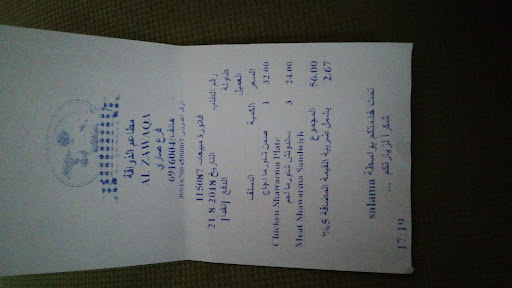 مطاعم الذواقة
AL ZAWAQA
فرع صناري
هاتف: 6916004
فاتورة مبيعات 115087
التاريخ 21-8-2018
رقم الطلب
طاولة
العميل
الصنف الكمية السعر
صحن شاورما دجاج 1 32.00
Chicken Shawarma Plate
ساندوتش شاورما لحم 3 24.00
Meat Shawarma Sandwich
المجموع 56.00
يشمل ضريبة القيمة المضافة 5% 2.67
تمت خدمتكم بواسطة salama
شكرا لزيارتكم ...
17:19